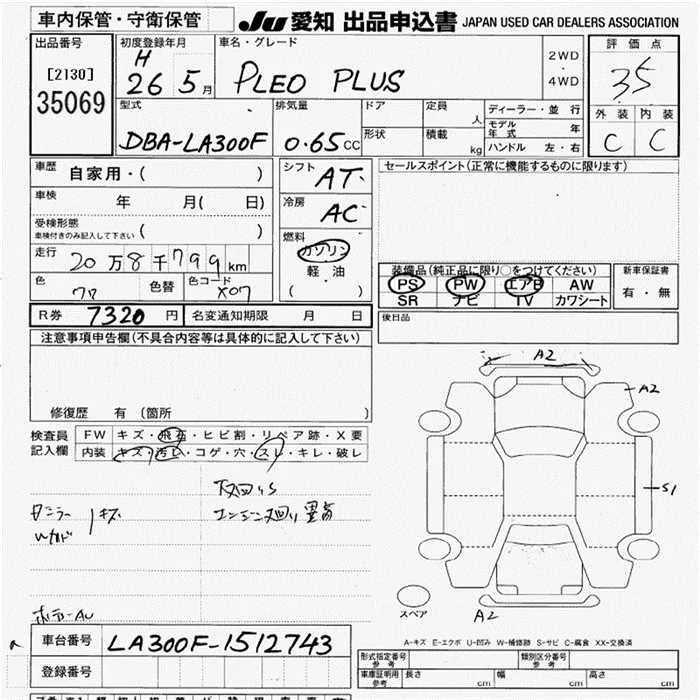 車内保管・守衛保管 JU 愛知 出品申込書 JAPAN USED CAR DEALERS ASSOCIATION
出品番号 初度登録年月 車名・グレード 評価点
[2130] H 26 5月 PLEO PLUS 2WD ・ 4WD 35
35069
型式 排気量 ドア 定員 人 ディーラー・並行 外装 内装
モデル年式 年
DBA-LA300F 0.65cc 形状 積載 kg ハンドル 左・右 C C
車歴 自家用・( ) シフト AT セールスポイント(正常に機能するものに限ります)
車検 年 月( 日) 冷房 AC
受検形態
車検付きのみ記入して下さい ( )
走行 20万8千799km 燃料 ガソリン 軽油 ( )
装備品(純正品に限り○をつけてください) 新車保証書
色 色替 色コード X07 PS PW エアB AW 有・無
SR ナビ TV カワシート
R券 7320円 名変通知期限 月 日 後日品
注意事項申告欄(不具合内容等は具体的に記入して下さい)
修復歴 有(箇所 )
検査員記入欄 FW キズ・飛石・ヒビ割・リペア跡・X要
内装 キズ・汚レ・コゲ・穴・スレ・キレ・破レ
A2
A2
S1
A2
下廻りS
キズ
スペア
A-キズ E-エクボ U-凹み W-補修跡 S-サビ C-腐食 XX-交換済
車台番号 LA300F-1512743
登録番号
形式指定番号 参考 類別区分番号 参考
車庫証明用 参考 長さ cm 幅 cm 高さ cm